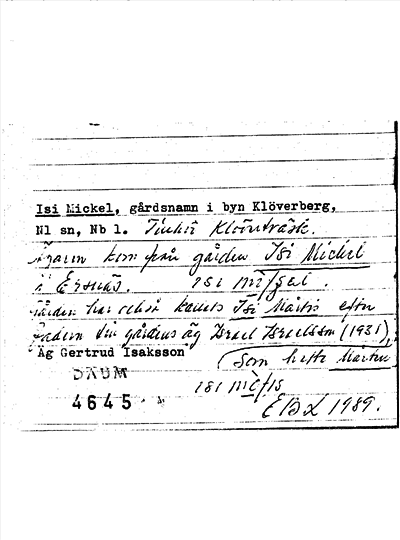 Isi Mickel, gårdsnamn i byn Klöverberg,
Nl sn, Nb l. Tinhör Klöverträsk.
Ägaren kom från gården Isi Mickel
i Ersnäs. isi
Gården har också kallats Isi Mårtis efter
fadern till gårdens äg Israel Israelsson (1931),
Äg Gertrud Isaksson (som hette Mårten
DAUM isi
4645 EBL 1989.